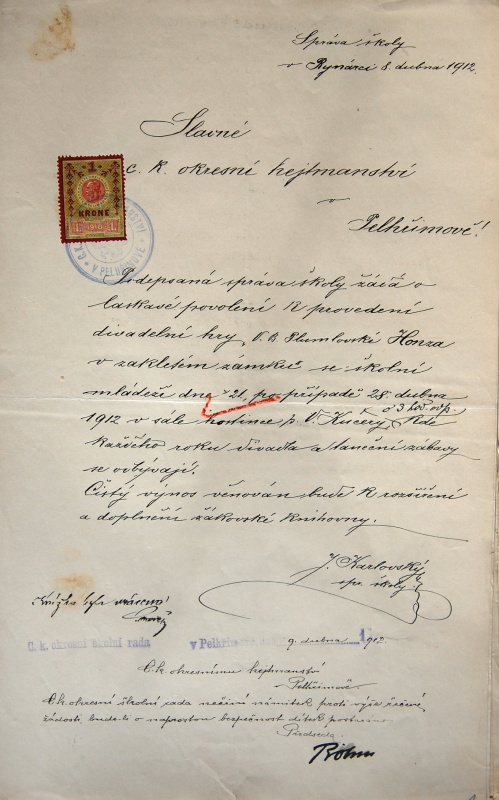 Správa školy
v Rynárci 8. dubna 1912.
Slavné
c. k. okresní hejtmanství
v
Pelhřimově!
1
KRONE
1910
V PELHŘIMOVĚ
Podepsaná správa školy žádá o
laskavé povolení k provedení
divadelní hry V. B. Plumlovské Honza
v zakletém zámku se školní
mládeží dne 21, po případě 28. dubna
o 3 hod. odp.
1912 v sále hostince p. V. Kučery, kde
každého roku divadla a taneční zábavy
se odbývají.
Čistý výnos věnován bude k rozšíření
a doplnění žákovské knihovny.
J. Karlovský
spr. školy.
Knížka byla vrácena!
C. k. okresní školní rada v Pelhřimově 9. dubna 1912.
C. k. okresnímu hejtmanství
Pelhřimově
C. k. okresní školní rada nečiní námitek proti výše řečené
žádosti, bude-li o naprostou bezpečnost dítek postaráno
Předseda
Böhm